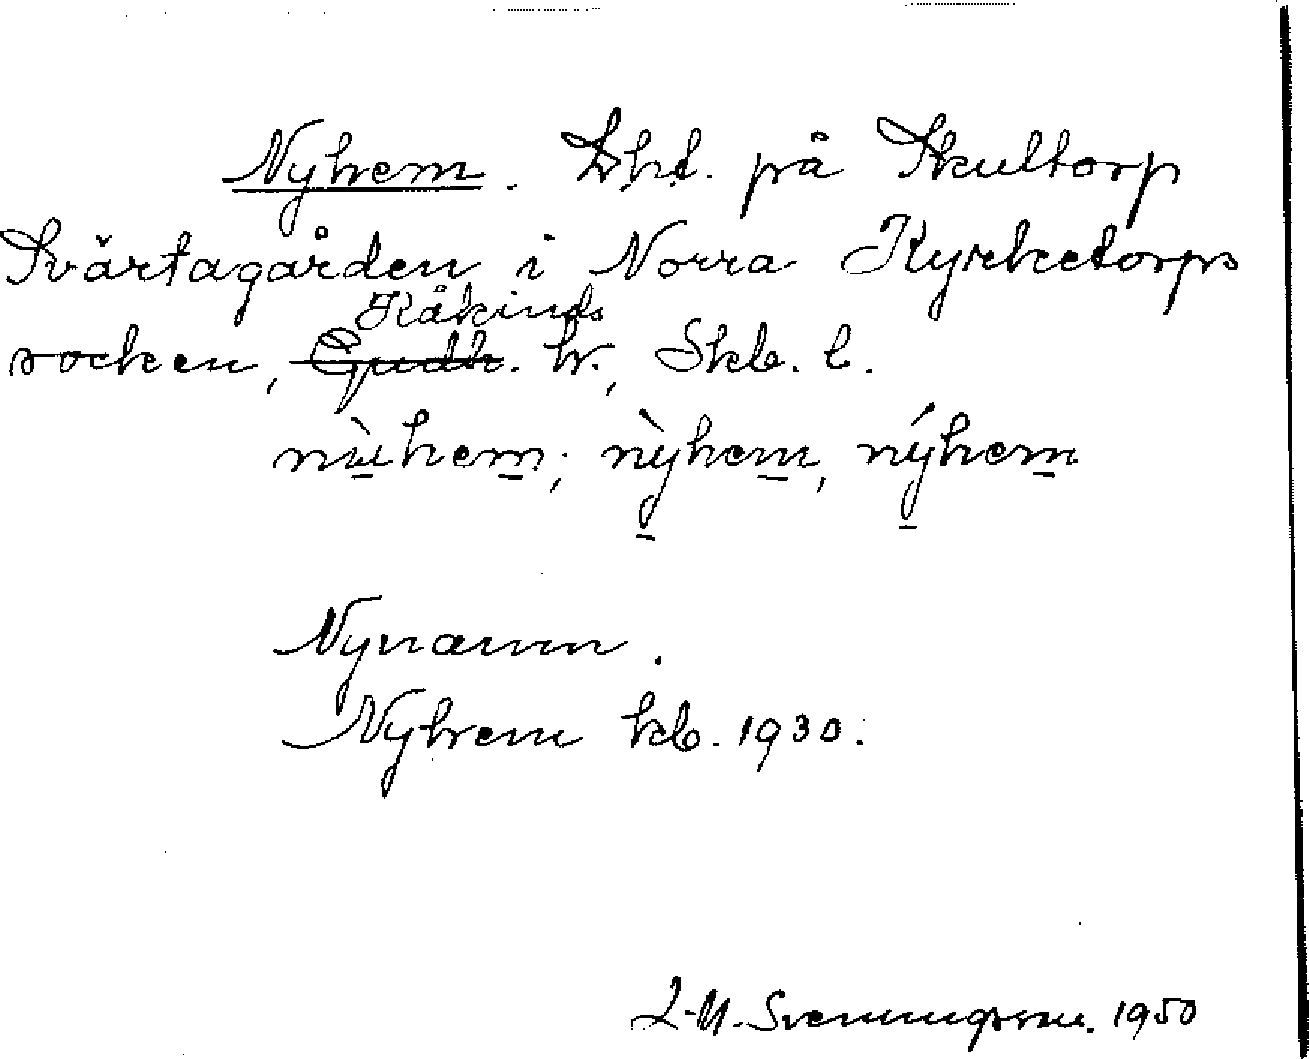 Nyhem. Lht. på Skultorp
Svärtagården i Norra Kyrketorps
Kåkinds
socken, Gudh. hr., Skb. l.
nùhem; nỳhem, nýhem
Nynamn.
Nyhem kb. 1930.
L-M. Svenningsson. 1950